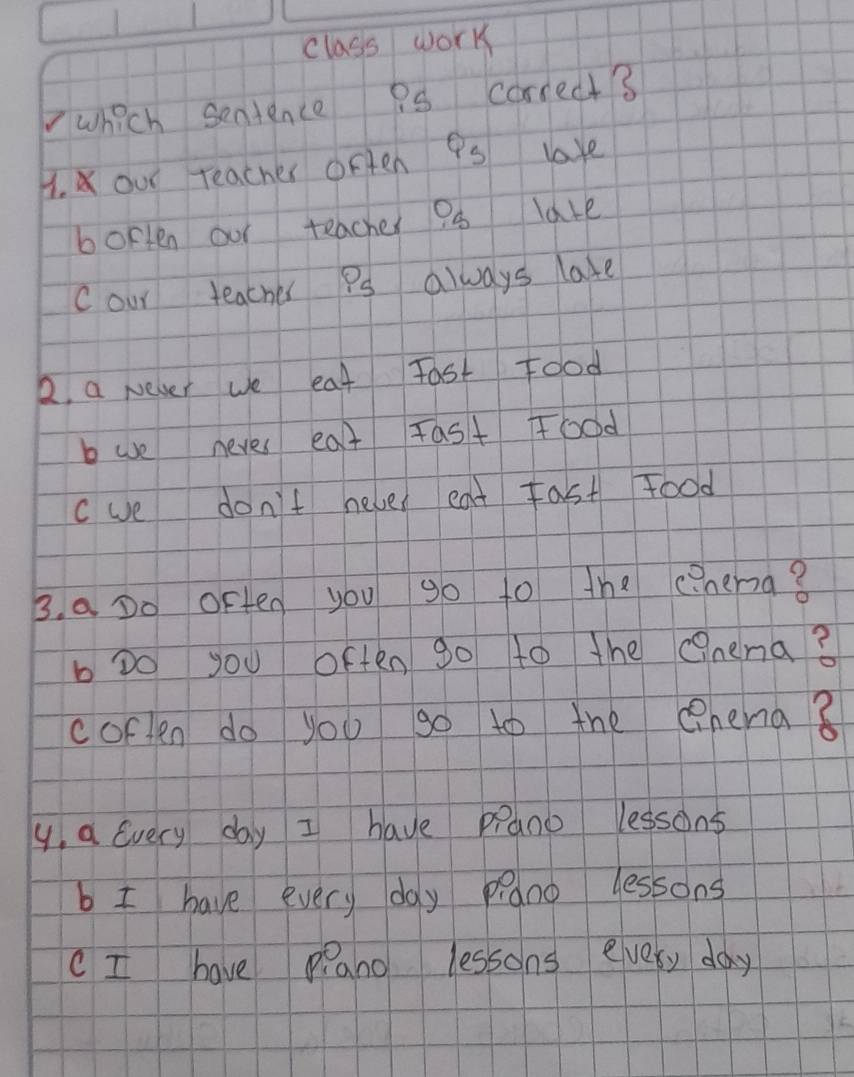 class work
✓ which sentence is correct?
1. a our teacher often is late
b often our teacher is late
c our teacher is always late
2. a Never we eat Fast Food
b we never eat Fast Food
c we don't never eat Fast Food
3. a Do often you go to the cinema?
b Do you often go to the cinema?
c often do you go to the cinema?
4. a Every day I have piano lessons
b I have every day piano lessons
c I have piano lessons every day